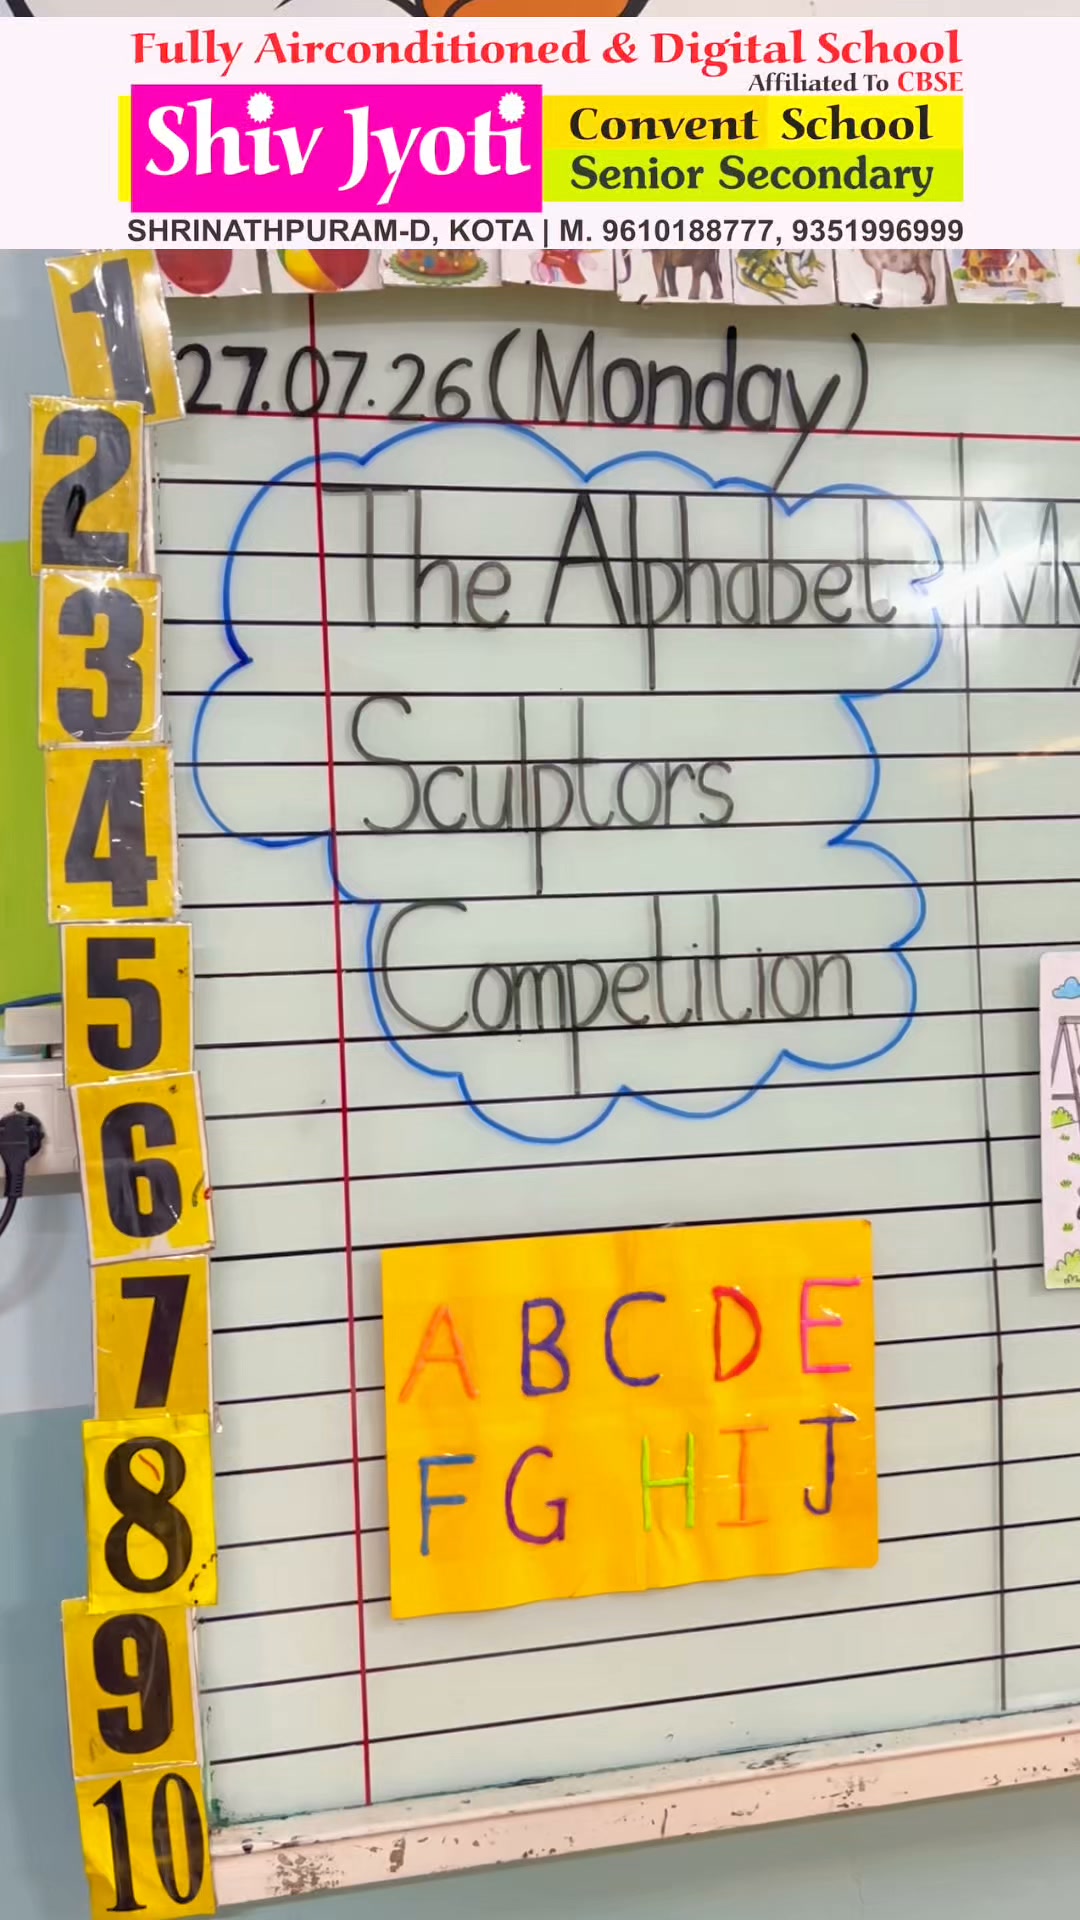 Fully Airconditioned & Digital School
Affiliated To CBSE
Shiv Jyoti
Convent School
Senior Secondary
SHRINATHPURAM-D, KOTA | M. 9610188777, 9351996999
27.07.26 (Monday)
The Alphabet
Sculptors
Competition
My
A B C D E
F G H I J
1
2
3
4
5
6
7
8
9
10